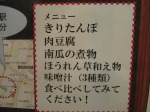 駅
分
メニュー
きりたんぽ
肉豆腐
南瓜の煮物
ほうれん草和え物
味噌汁（3種類）
食べ比べしてみて
ください！